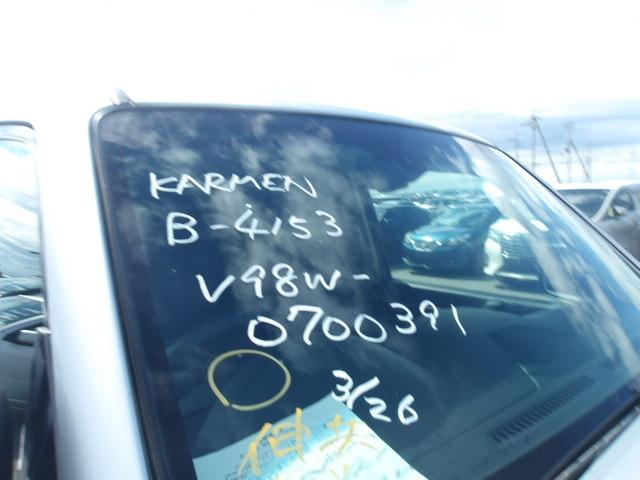 KARMEN
B-4153
V98W-
0700391
3/26